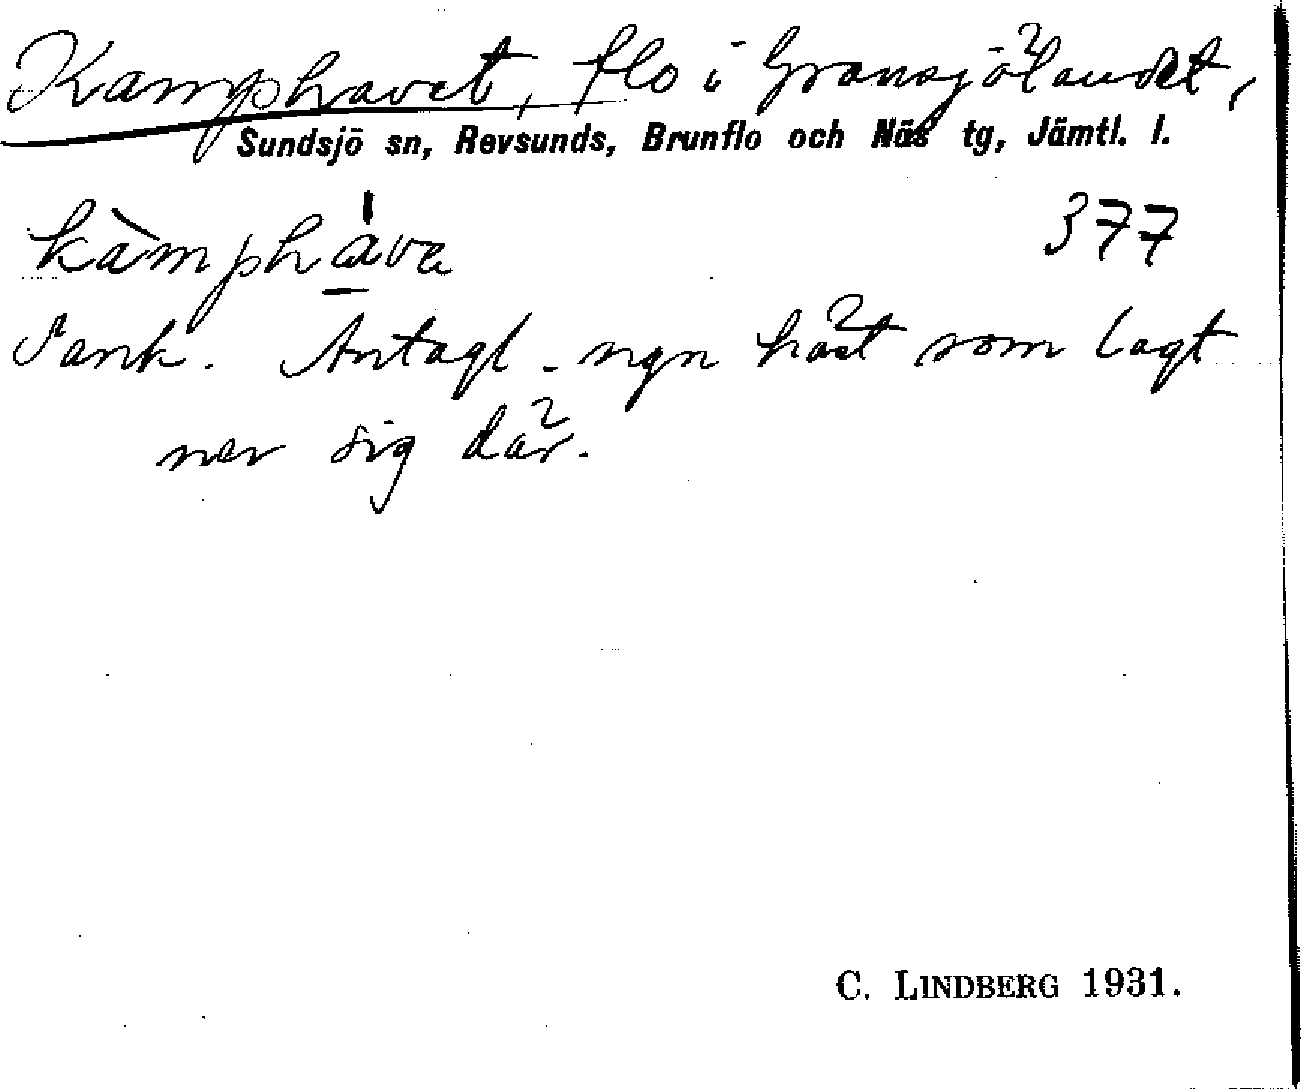 Kamphavet, flo i Gransjölandet,
Sundsjö sn, Revsunds, Brunflo och Näs tg, Jämtl. l.
kàmpháva 377
Sank. Antagl. ngn häst som lagt
ner sig där.
C. LINDBERG 1931.